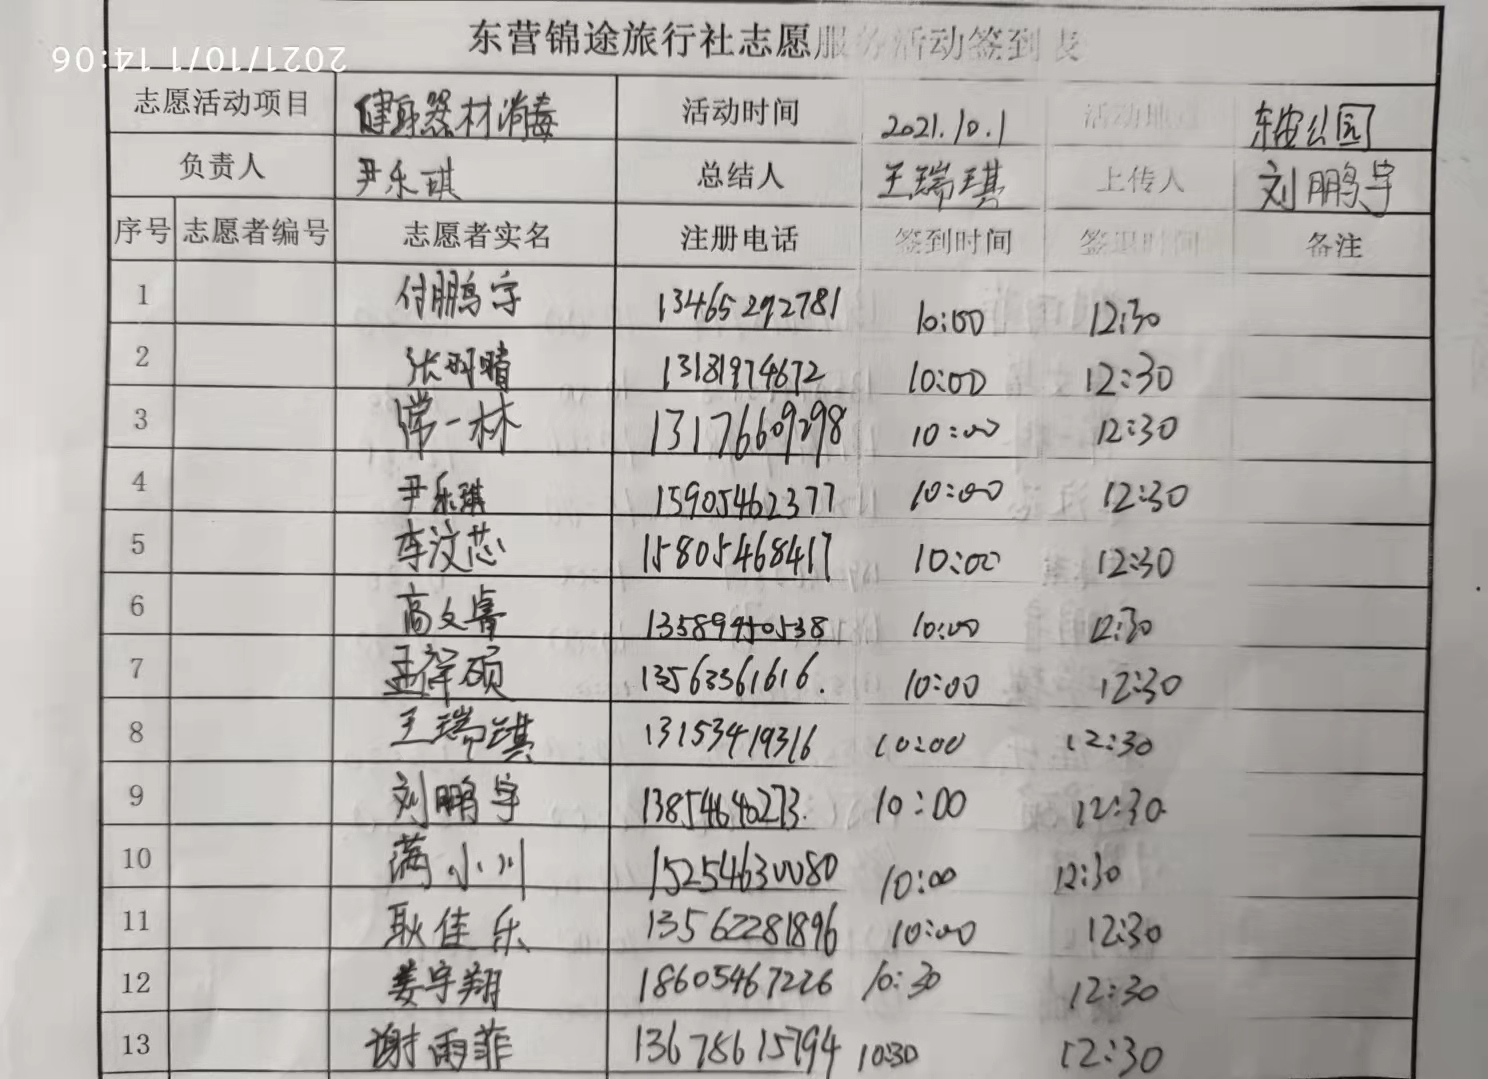 东营锦途旅行社志愿服务活动签到表
2021/10/1 14:06
志愿活动项目 健身器材消毒 活动时间 2021.10.1 活动地点 东安公园
负责人 尹乐琪 总结人 王瑞琪 上传人 刘鹏宇
序号 志愿者编号 志愿者实名 注册电话 签到时间 签退时间 备注
1 付鹏宇 13465292781 10:00 12:30
2 张明晴 13181974672 10:00 12:30
3 常一林 13176609298 10:00 12:30
4 尹乐琪 15905462377 10:00 12:30
5 李汶芯 15805468417 10:00 12:30
6 高文睿 13589950538 10:00 12:30
7 孟祥硕 13563361616. 10:00 12:30
8 王瑞琪 13153419316 10:00 12:30
9 刘鹏宇 13854640273. 10:00 12:30
10 满小川 15254630080 10:00 12:30
11 耿佳乐 13562281896 10:00 12:30
12 姜宇翔 18605467226 10:30 12:30
13 谢雨菲 13678615794 10:30 12:30